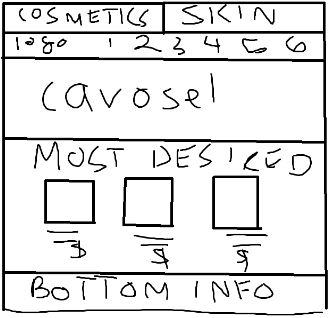 COSMETICS SKIN
logo 1 2 3 4 5 6
carosel
MOST DESIRED
$ $ $
BOTTOM INFO